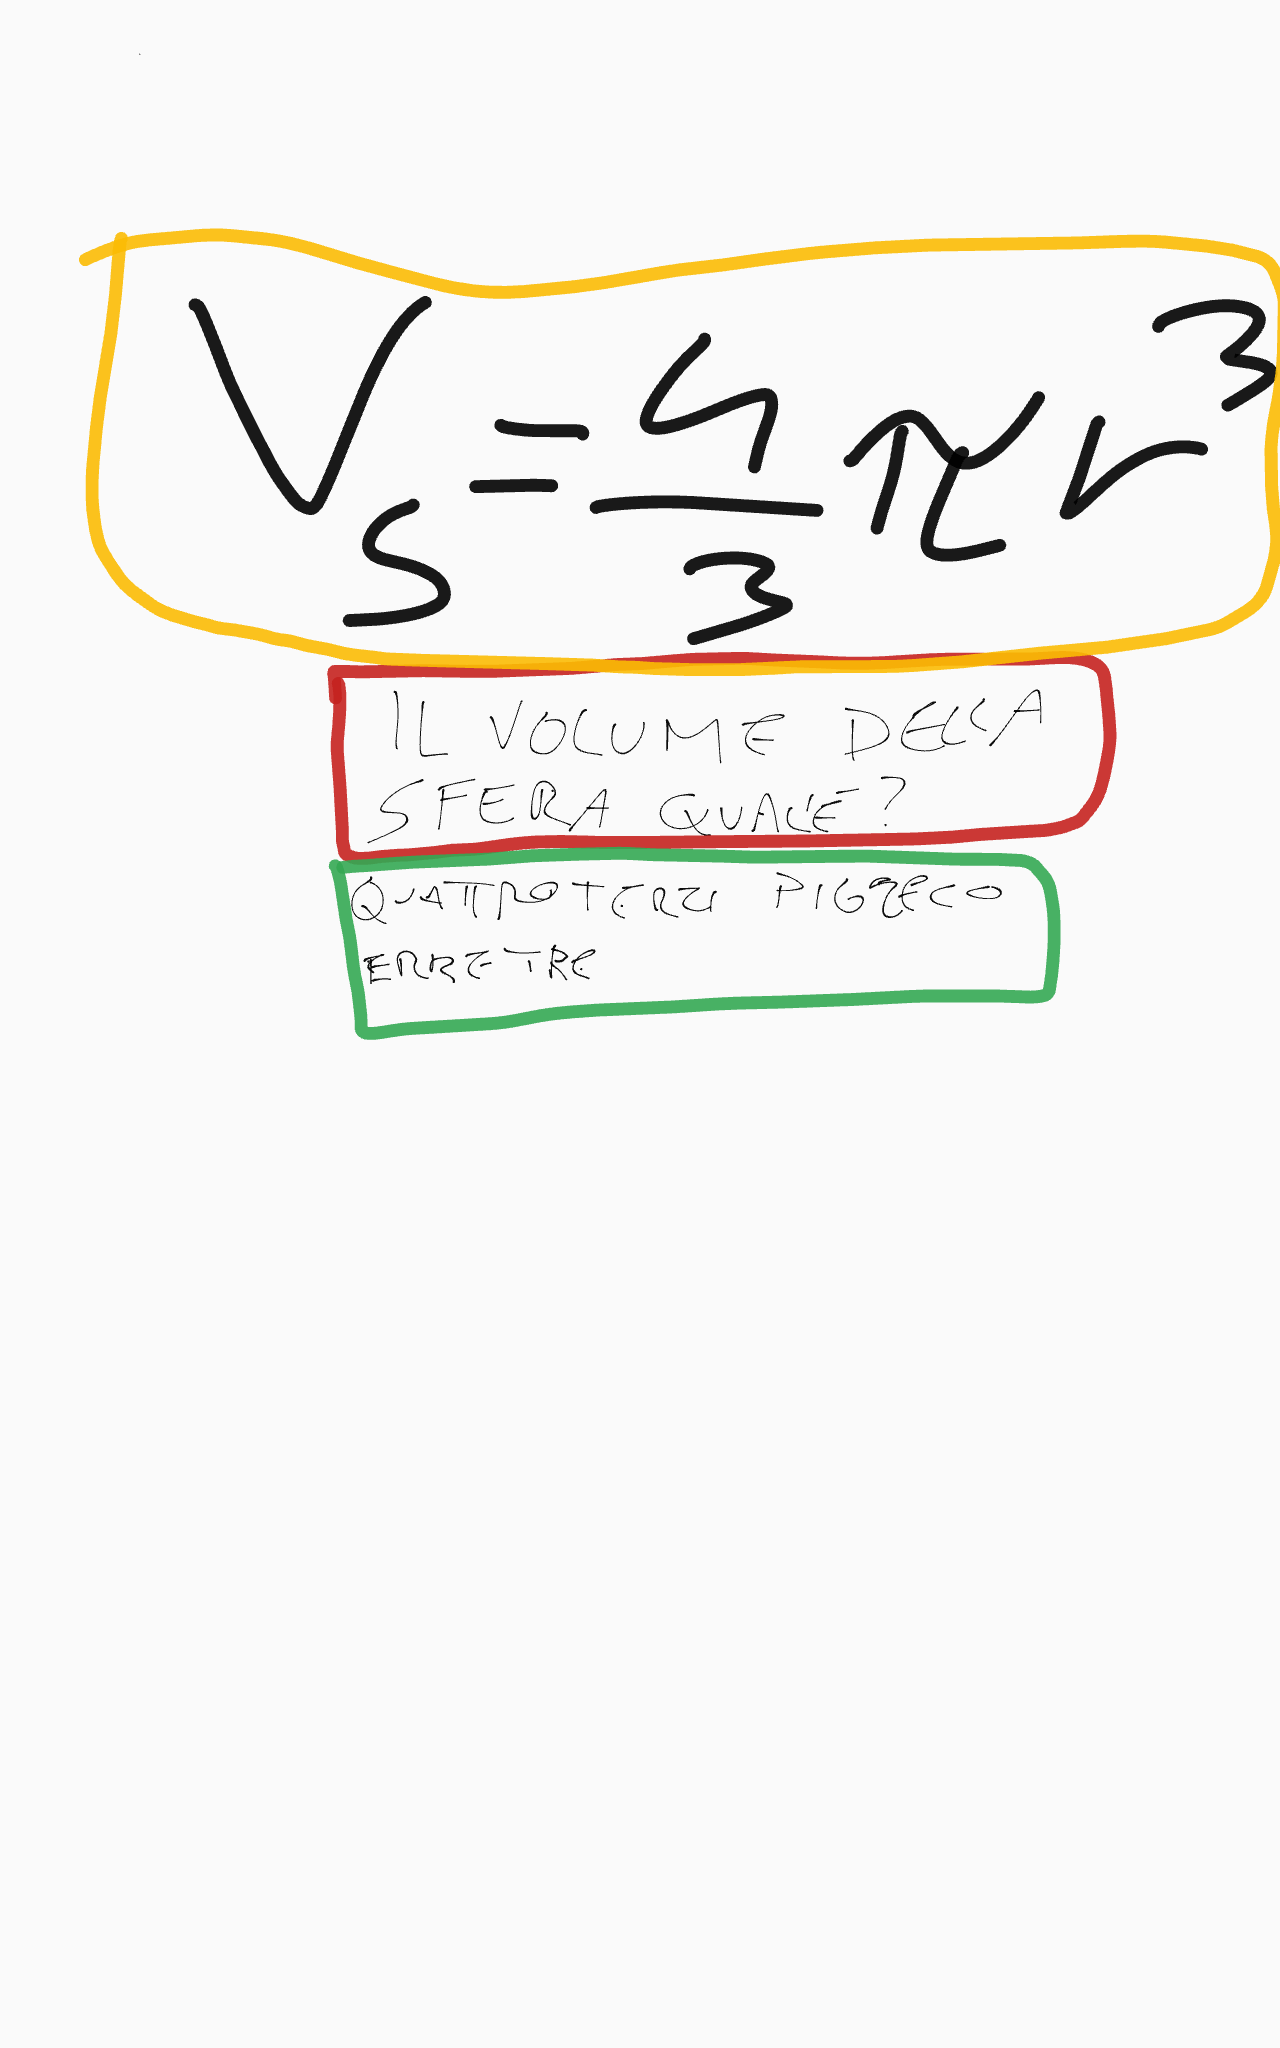 Vs = 4/3 πr³
IL VOLUME DELLA
SFERA QUAL'È?
QUATTRO TERZI PIGRECO
ERRE TRE